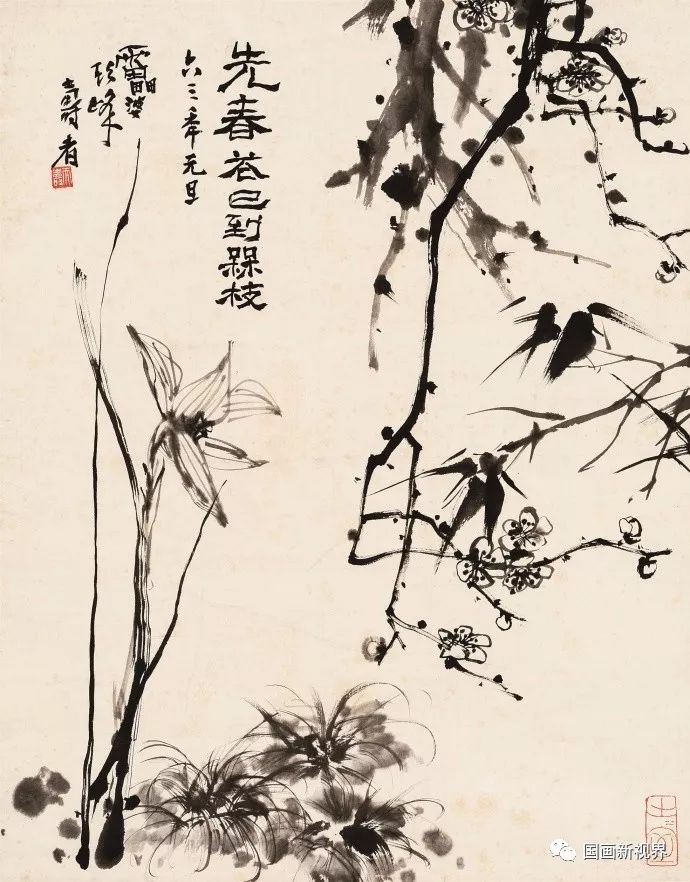 先春花已到槑枝
六三年元旦
靁婆
頭峰
壽者
国画新视界